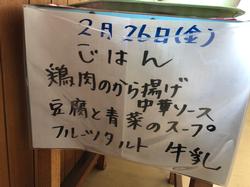 2月26日(金)
ごはん
鶏肉のから揚げ
中華ソース
豆腐と青菜のスープ
フルーツタルト 牛乳